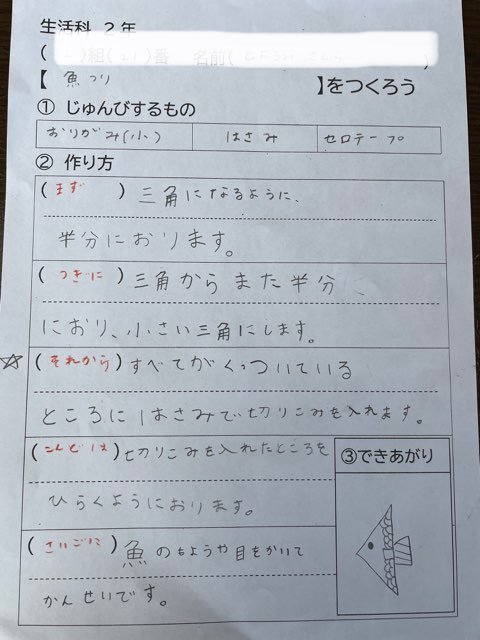 生活科 2年
【 魚つり 】をつくろう
① じゅんびするもの
おりがみ(小) はさみ セロテープ
② 作り方
(まず) 三角になるように、
半分におります。
(つぎに) 三角からまた半分に
におり、小さい三角にします。
☆(それから) すべてがくっついている
ところにはさみで切りこみを入れます。
(こんどは) 切りこみを入れたところを
ひらくようにおります。
(さいごに) 魚のもようや目をかいて
かんせいです。
③できあがり